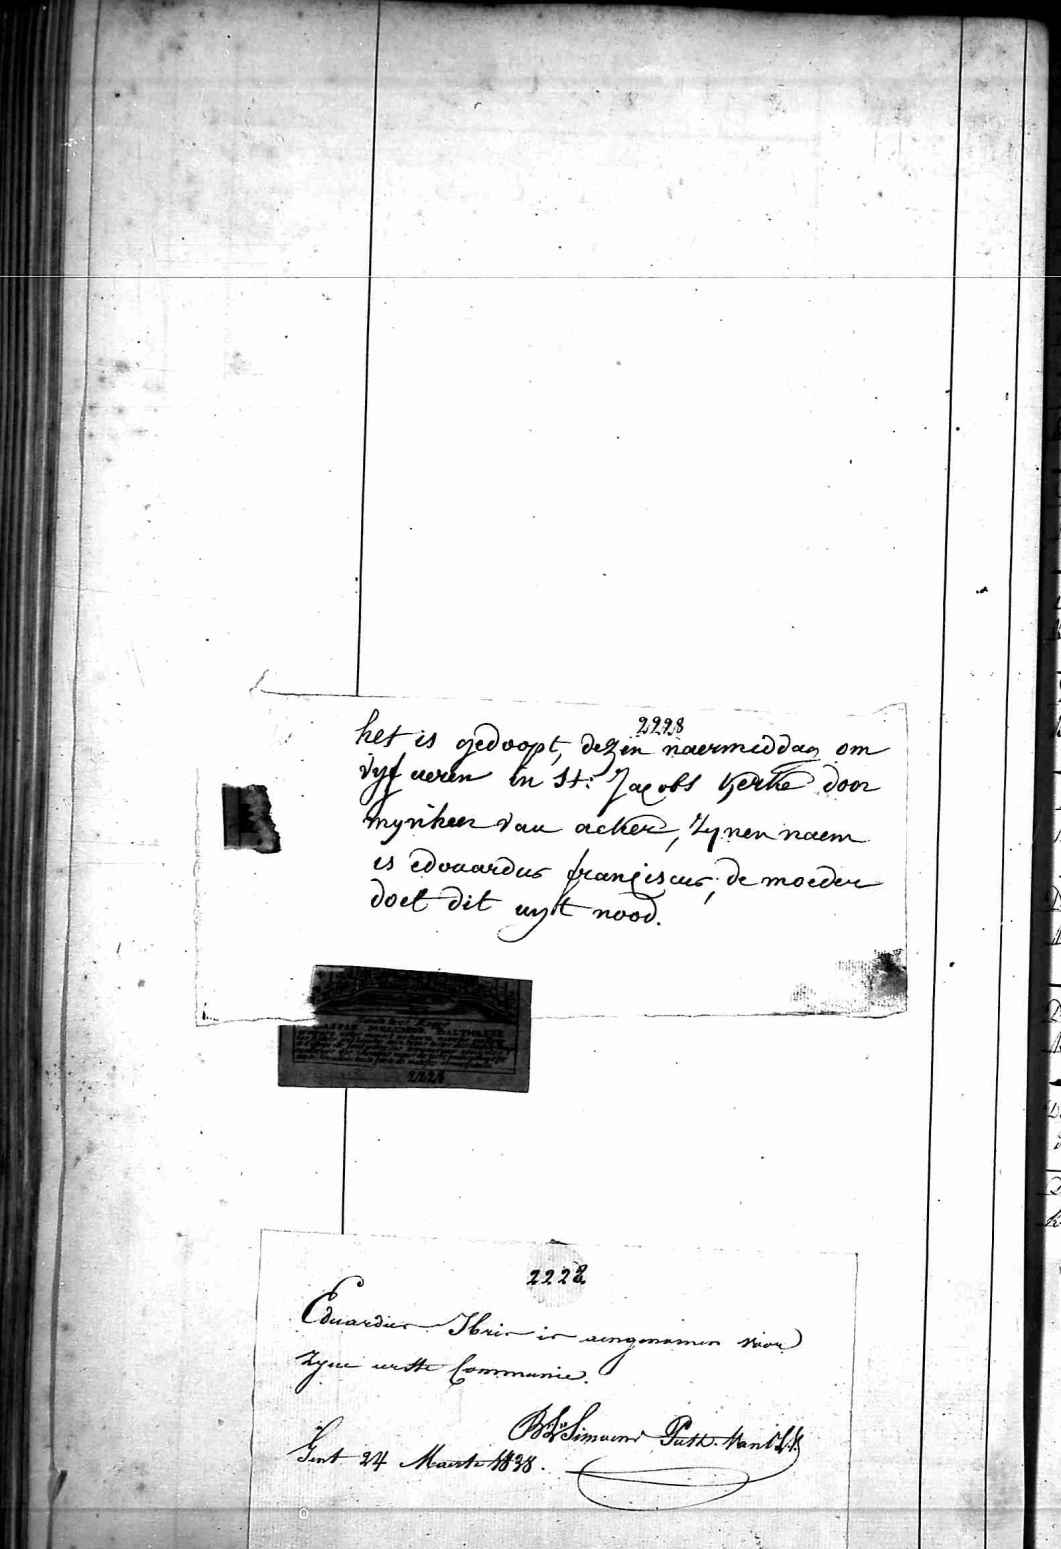 2228
het is gedoopt, dezen naermiddag om
vyf ueren in St: Jacobs kerke door
mynheer van acker, zynen naem
is edouardus franciscus, de moeder
doet dit uyt nood.
2228
2228
Eduardus is aengenomen voor
zyne eerste Communie.
Simoens Past.
Gent 24 Maerte 1838.